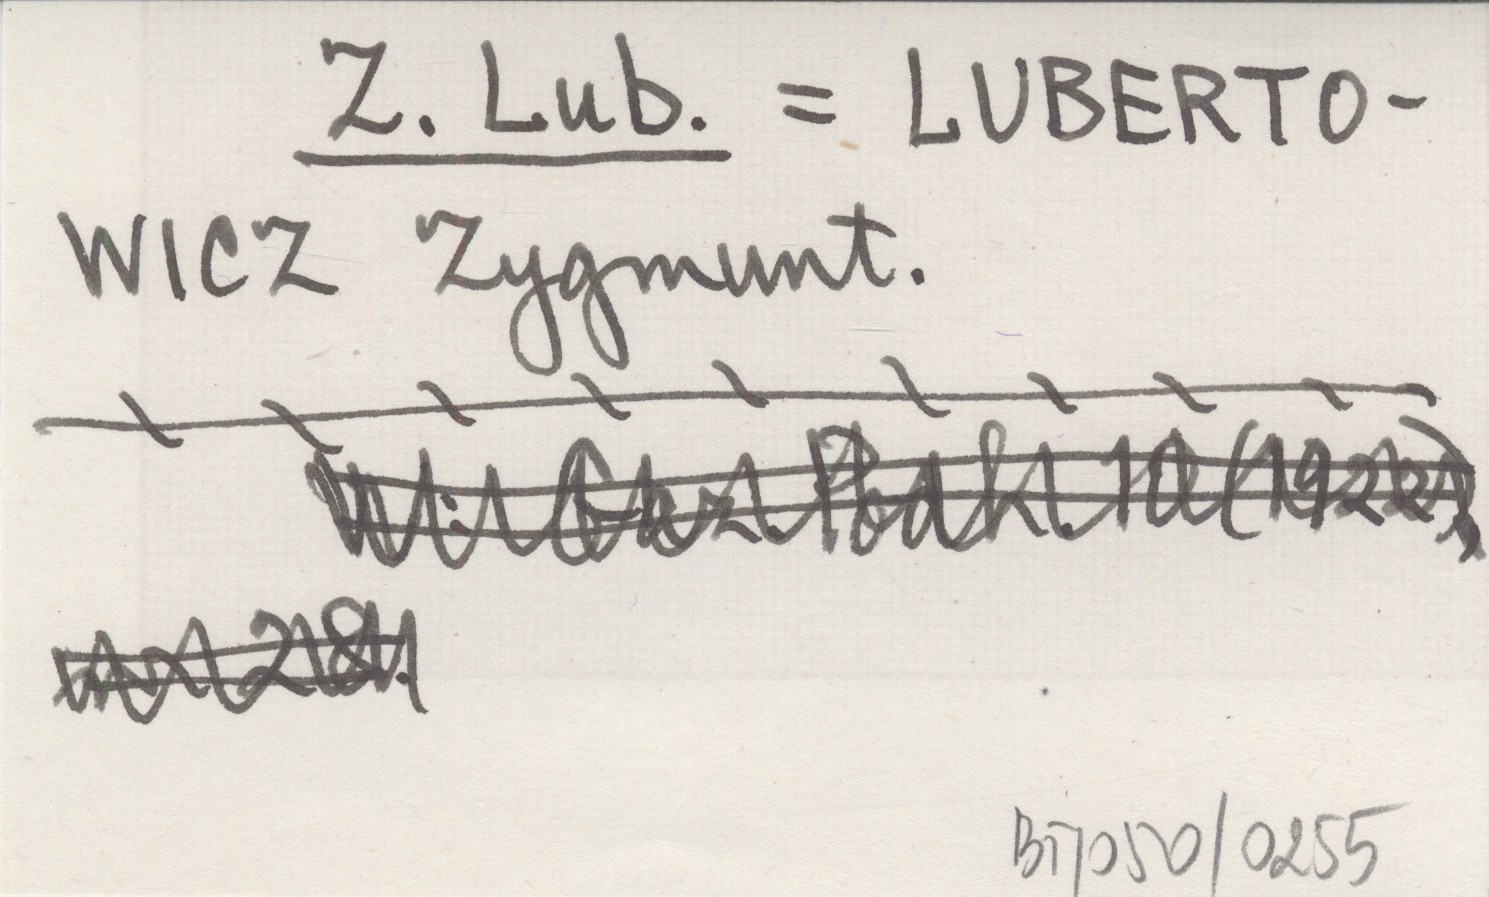 Z. Lub. = LUBERTO-
WICZ Zygmunt.
W: Gaz. Podh. 10 (1922),
28.
BT/050/0255